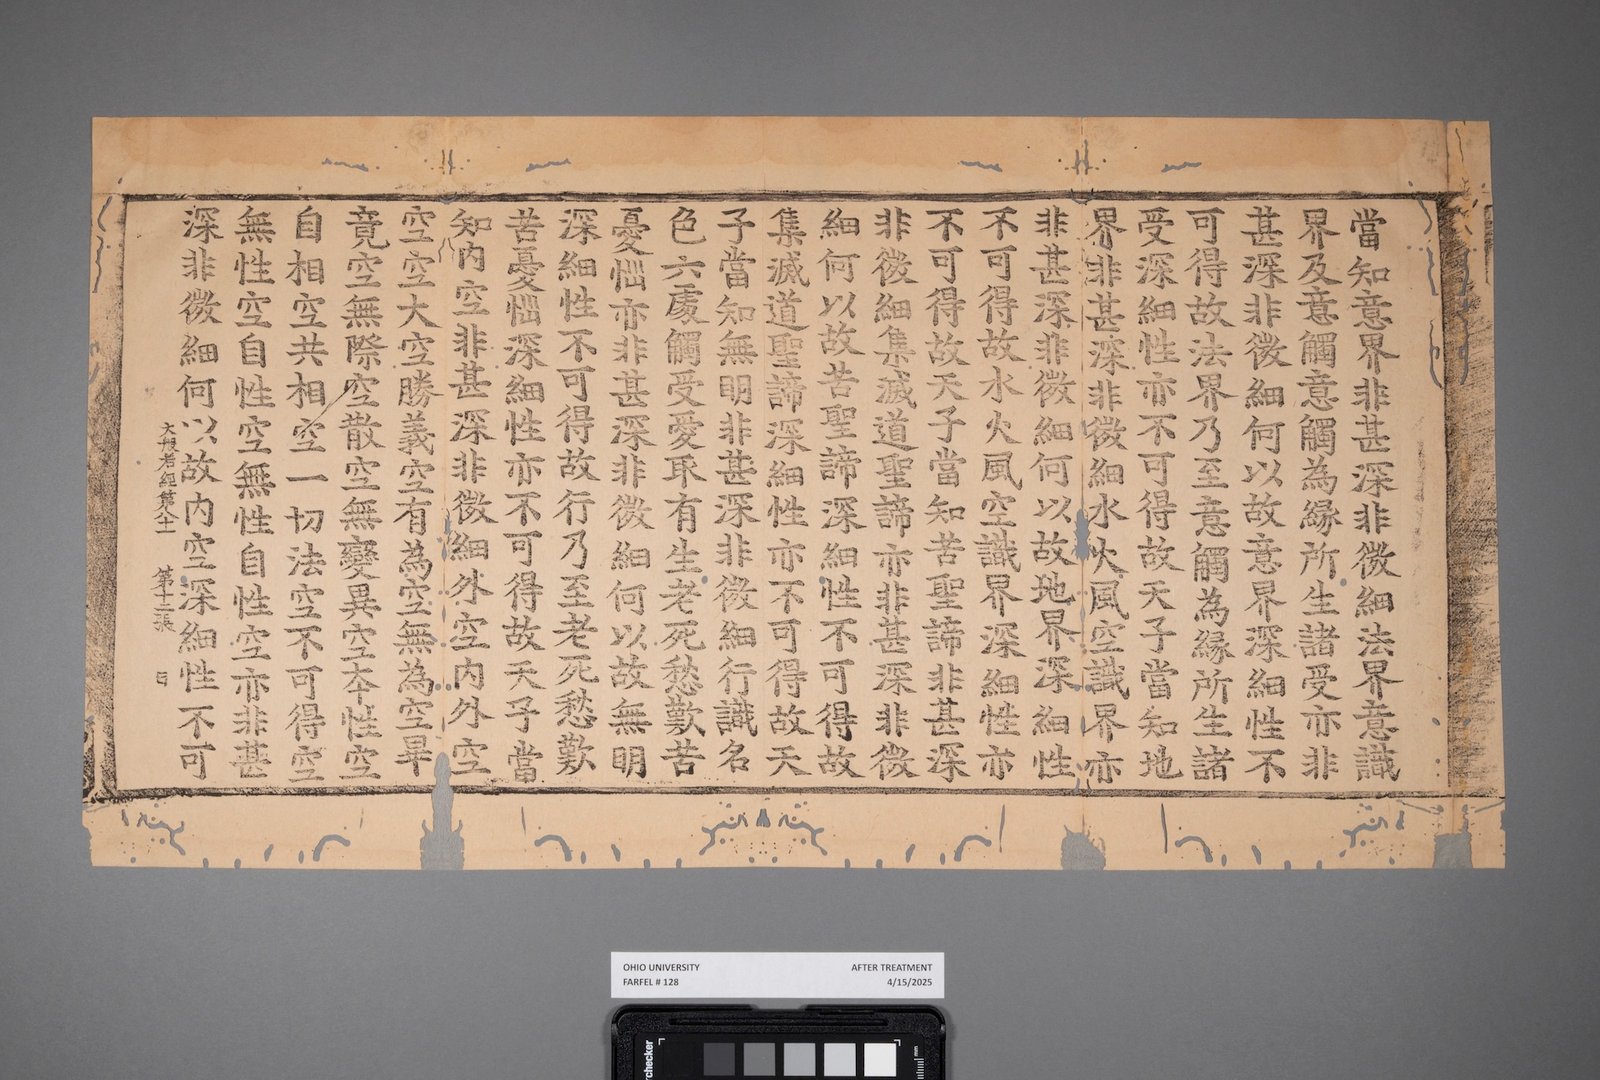 當知意界非甚深非微細法界意識
界及意觸意觸為緣所生諸受亦非
甚深非微細何以故意界深細性不
可得故法界乃至意觸為緣所生諸
受深細性亦不可得故天子當知地
界非甚深非微細水火風空識界亦
非甚深非微細何以故地界深細性
不可得故水火風空識界深細性亦
不可得故天子當知苦聖諦非甚深
非微細集滅道聖諦亦非甚深非微
細何以故苦聖諦深細性不可得故
集滅道聖諦深細性亦不可得故天
子當知無明非甚深非微細行識名
色六處觸受愛取有生老死愁歎苦
憂惱亦非甚深非微細何以故無明
深細性不可得故行乃至老死愁歎
苦憂惱深細性亦不可得故天子當
知內空非甚深非微細外空內外空
空空大空勝義空有為空無為空畢
竟空無際空散空無變異空本性空
自相空共相空一切法空不可得空
無性空自性空無性自性空亦非甚
深非微細何以故內空深細性不可
大般若經第八十一 第十二張
OHIO UNIVERSITY AFTER TREATMENT
FARFEL # 128 4/15/2025